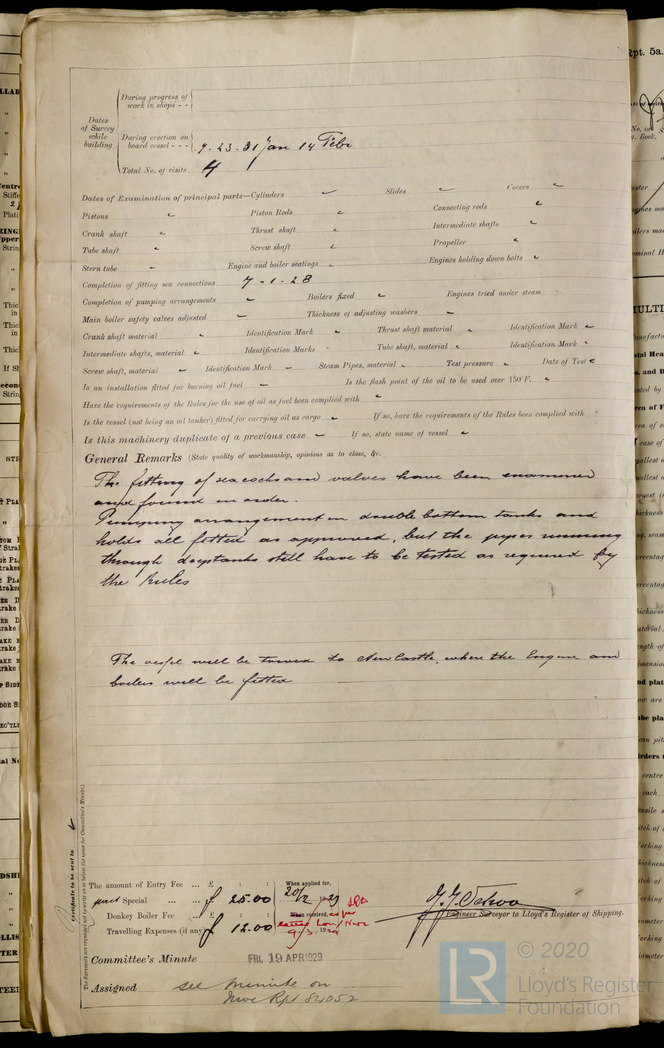 During progress of
work in shops - -
Dates
of Survey
while
building
During erection on
board vessel - - -
7. 23. 31 Jan 14 Febr
Total No. of visits 4
Dates of Examination of principal parts—Cylinders Slides Covers
Pistons Piston Rods Connecting rods
Crank shaft Thrust shaft Intermediate shafts
Tube shaft Screw shaft Propeller
Stern tube Engine and boiler seatings Engines holding down bolts
Completion of fitting sea connections 7-1-28
Completion of pumping arrangements Boilers fixed Engines tried under steam
Main boiler safety valves adjusted Thickness of adjusting washers
Crank shaft material Identification Mark Thrust shaft material Identification Mark
Intermediate shafts, material Identification Marks Tube shaft, material Identification Mark
Screw shaft, material Identification Mark Steam Pipes, material Test pressure Date of Test
Is an installation fitted for burning oil fuel Is the flash point of the oil to be used over 150°F.
Have the requirements of the Rules for the use of oil as fuel been complied with
Is the vessel (not being an oil tanker) fitted for carrying oil as cargo If so, have the requirements of the Rules been complied with
Is this machinery duplicate of a previous case If so, state name of vessel
General Remarks (State quality of workmanship, opinions as to class, &c.
The fitting of seacocks and valves have been examined
and found in order.
Pumping arrangement in double bottom tanks and
holds all fitted as approved, but the pipes running
through deeptanks still have to be tested as required by
the Rules
The vessel will be towed to Newcastle, where the Engine and
boilers will be fitted
Certificate to be sent to
The amount of Entry Fee ... £ : :
part Special ... £ 25.00
Donkey Boiler Fee ... £ : :
Travelling Expenses (if any) £ 12.00
When applied for,
20/2 1929
When received,
9/3 1929
Engineer Surveyor to Lloyd's Register of Shipping.
Committee's Minute FRI. 19 APR 1929
Assigned see minute on
Nwc Rpt 84052
© 2020
LR
Lloyd's Register
Foundation
Rpt. 5a.